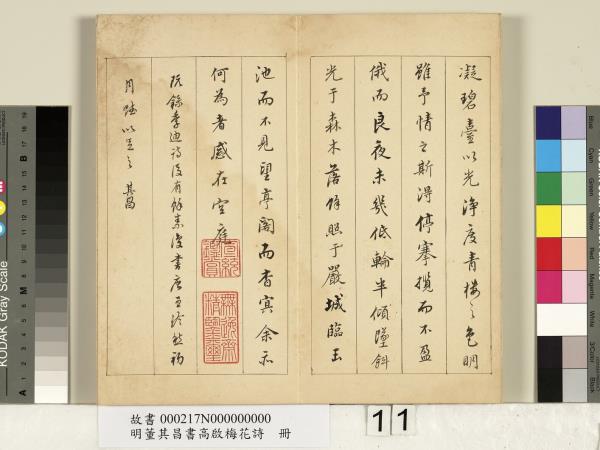 凝碧臺以光淨度青樓之色明
雖予情之斯得停搴攬而不盈
俄而良夜未幾低輪半傾墜斜
光于森木落餘照于嚴城臨玉
池而不見望亭閣而杳冥余亦
何為者感在空庭
既錄季迪詩後有餘素復書唐
月賦以足之 其昌
故書 000217N000000000
明董其昌書高啟梅花詩 冊
11
KODAK Gray Scale
A 1 2 3 4 5 6 M 8 9 10 B 11 12 13 14 15 16 17 18 19
Blue
Cyan
Green
Yellow
Red
Magenta
White
3/Color
Black